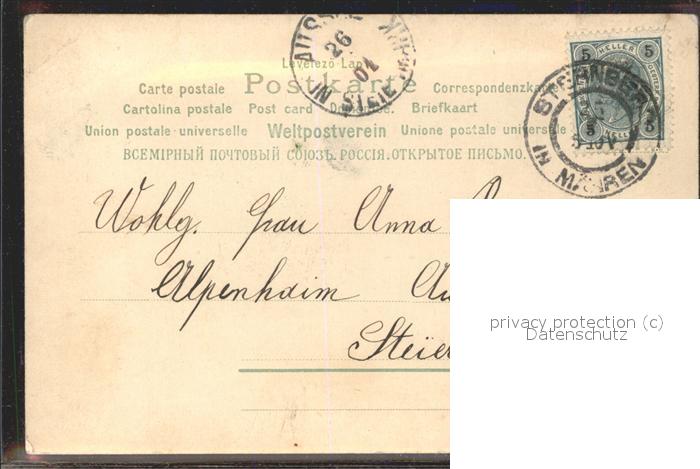 Levelező-Lap
Carte postale Postkarte Correspondenzkarte
Cartolina postale Post card Briefkaart
Union postale universelle Weltpostverein Unione postale universale
ВСЕМІРНЫЙ ПОЧТОВЫЙ СОЮЗЪ. РОССІЯ. ОТКРЫТОЕ ПИСЬМО.
26
01
IN STEIE
5 HELLER 5
5 5
STERNBERG
IN MÄHREN
Wohlg. Frau Anna
Alpenhaim
Steier
privacy protection (c)
Datenschutz